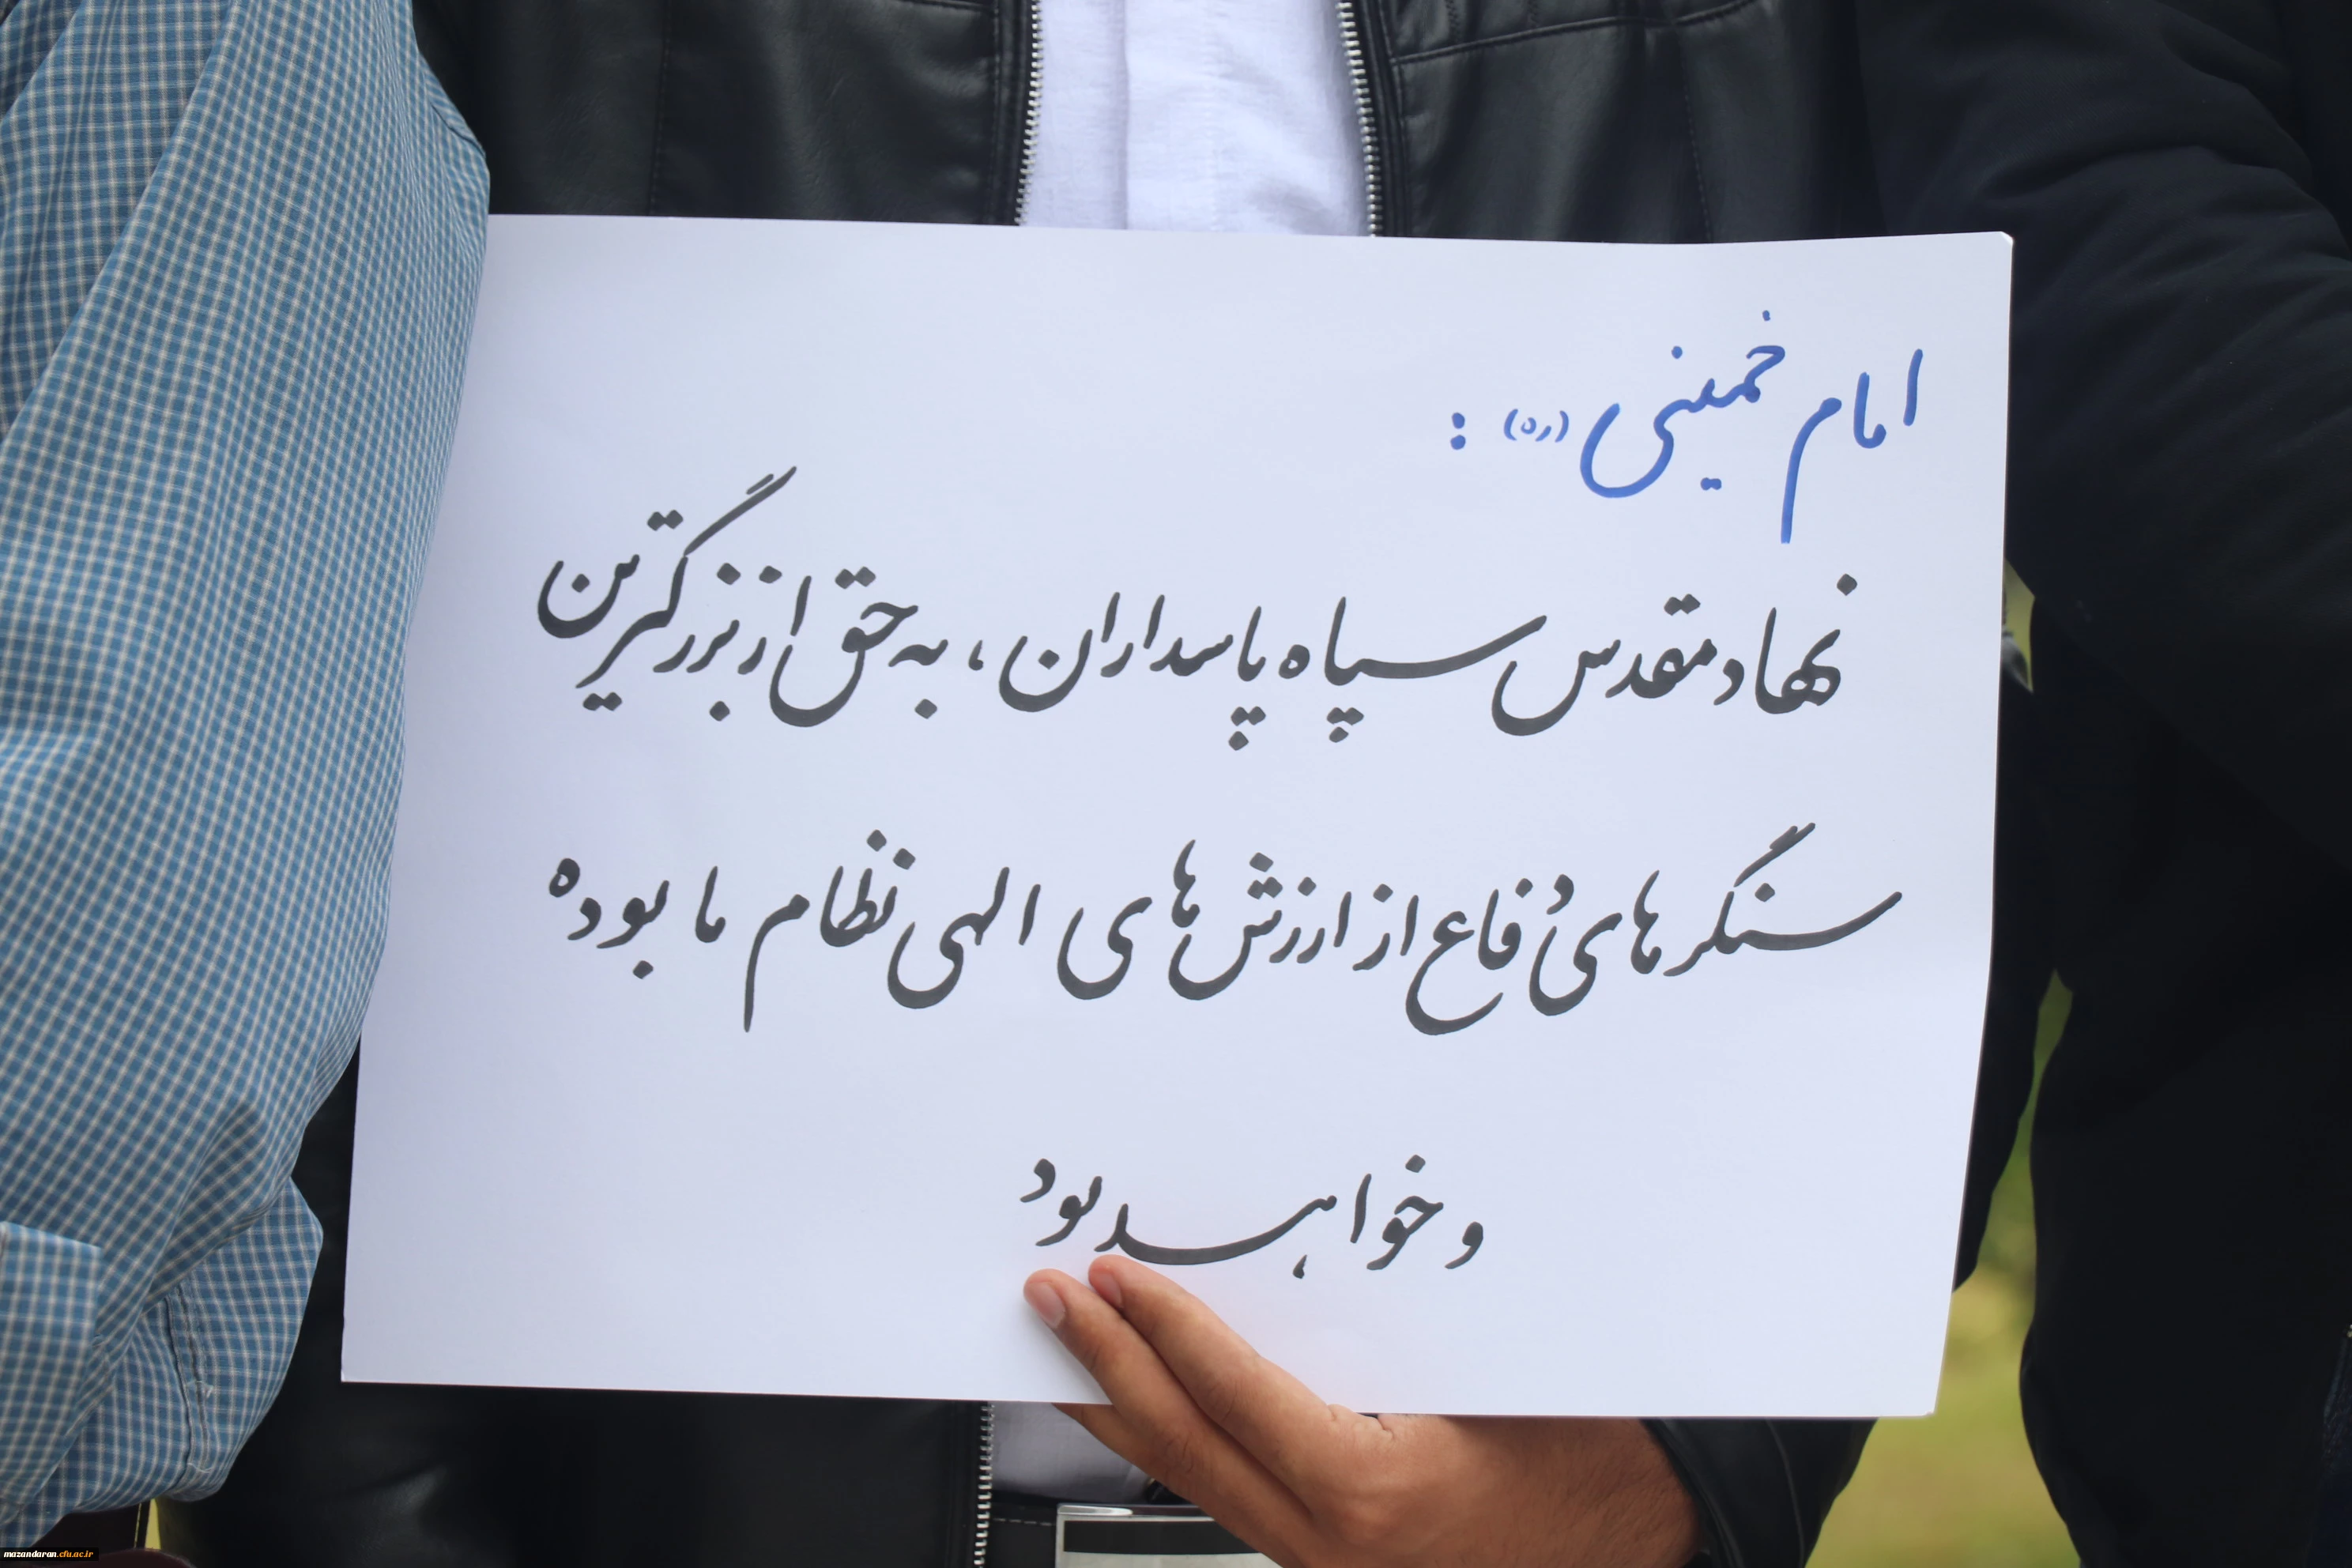 امام خمینی (ره) :
نهاد مقدس سپاه پاسداران، به حق از بزرگترین
سنگرهای دفاع از ارزش‌های الهی نظام ما بوده
و خواهد بود
mazandaran.cfu.ac.ir